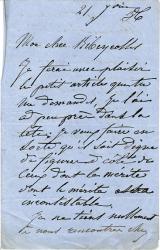 21 Juin
Mon cher
Je ferai avec plaisir
le petit article que tu
me demandes, je l'ai
à peu près dans la
tête. Je vais faire en
sorte qu'il soit digne
de figurer à côté de
ceux dont le mérite
dont le mérite
incontestable
Je ne tiens nullement
à nous rencontrer chez